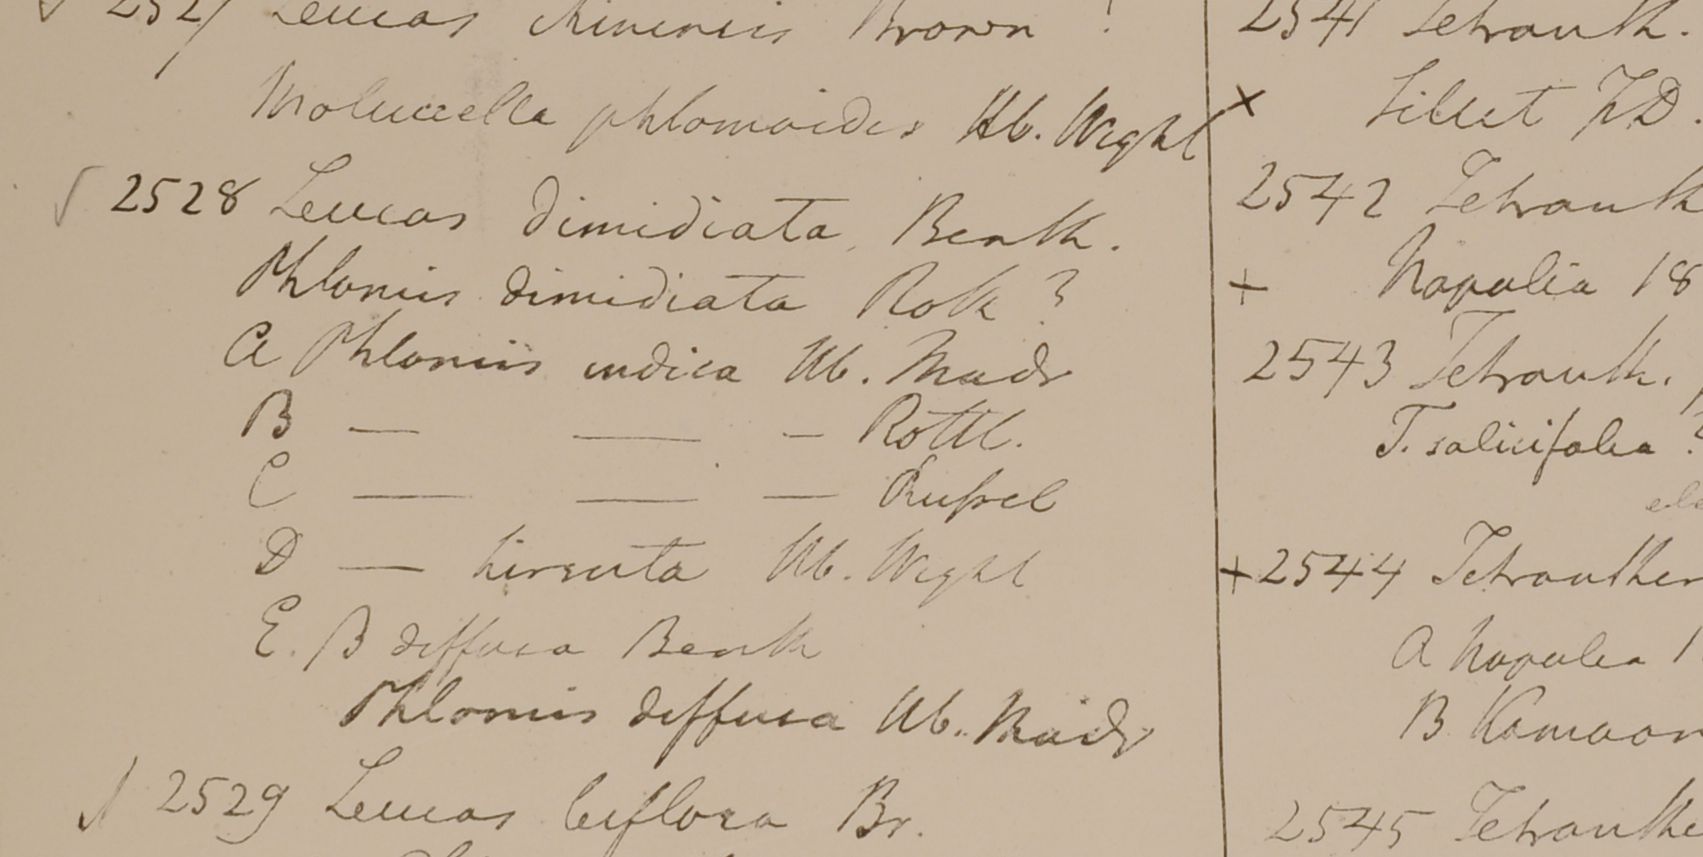 2527 Leucas chinensis Brown !
Moluccella phlomoides Hb. Wight
2528 Leucas dimidiata Benth.
Phlomis dimidiata Roth ?
a Phlomis indica Hb. Madr
B — — — Rottl.
C — — — Russel
D — hirsuta Hb. Wight
E. β diffusa Benth
Phlomis diffusa Hb. Madr
2529 Leucas biflora Br.
2541 Tetranth.
× Sillet FD.
2542 Tetranth
+ Napalia 18
2543 Tetranth.
T. salicifolia ?
+ 2544 Tetranther
a Napalea 1
B Kamaon
2545 Tetranthe